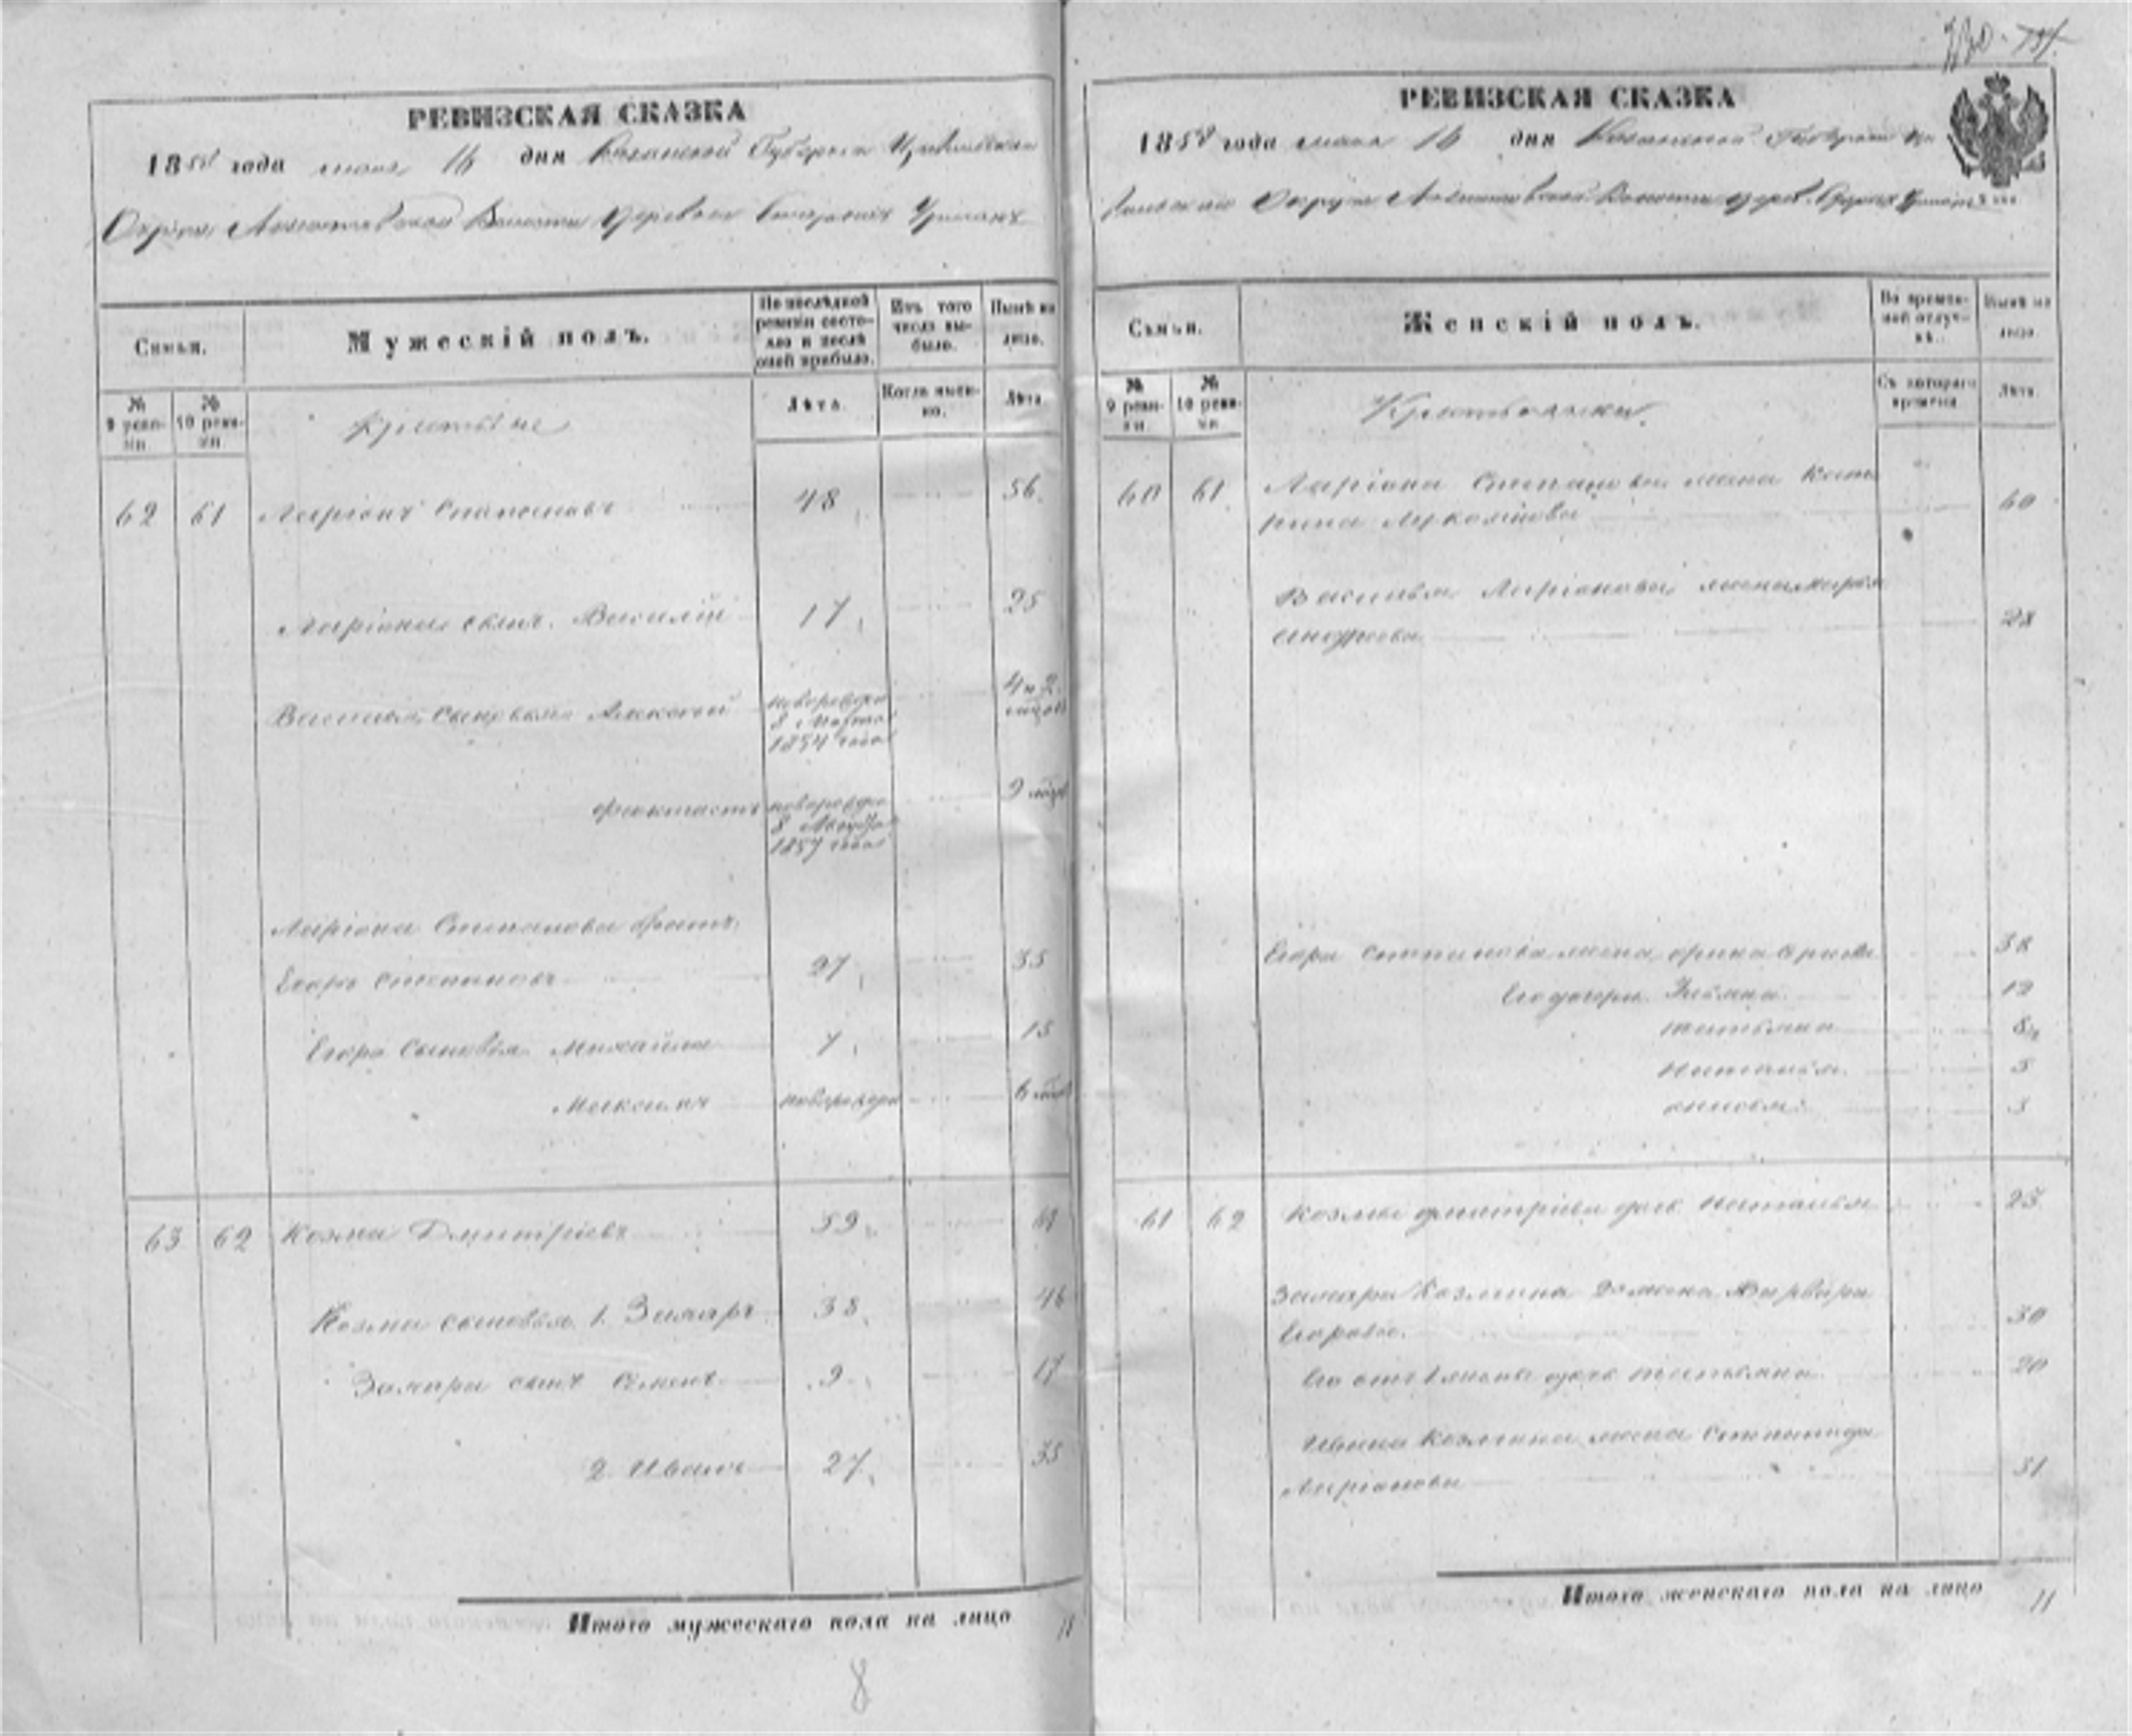 РЕВИЗСКАЯ СКАЗКА
1858 года мая 16 дня Казанской Губернии Цивильскаго
Округа Волости Деревни
Семьи.
Мужескій полъ.
По послѣдней ревизіи состояло и послѣ оной прибыло.
Изъ того числа выбыло.
Нынѣ на лицо.
№ 9 ревизіи.
№ 10 ревизіи.
Лѣта.
Когда именно.
Лѣта.
Крестьяне
62 61 Ларіонъ Степановъ 48 56
Ларіона сынъ Василій 17 25
Василья сыновья Алексей новорожден 8 Марта 1854 года 4 и 2
новорожден 8 1857 года 9
Ларіона Степанова братъ
Егоръ Степановъ 27 35
Егора сыновья Михайла 7 15
Максимъ новорожден 6
63 62 Козма Дмитріевъ 59
Козмы сыновья 1. Захаръ 38 46
Захара сынъ Семенъ 9 17
2 Иванъ 27 35
Итого мужескаго пола на лицо
8
РЕВИЗСКАЯ СКАЗКА
1858 года мая 16 дня Казанской Губерніи
Округа Волости
Семьи.
Женскій полъ.
Во временной отлучкѣ.
Нынѣ на лицо.
№ 9 ревизіи.
№ 10 ревизіи.
Съ котораго времени.
Лѣта.
Крестьянки
60 61 Ларіона Степанова жена Кате
рина 60
Василья Ларіонова жена Марья
Андреева 28
Егора Степанова жена Орина 38
Его дочери 12
Татьяна 8
Наталья 5
3
61 62 Козмы Дмитріева дочь Наталья 23
Захара Козмина 2 жена Варвара
Егорова 30
Его отъ 1 жены дочь Татьяна 20
Ивана Козмина жена Степанида
Ларіонова 31
Итого женскаго пола на лицо 11